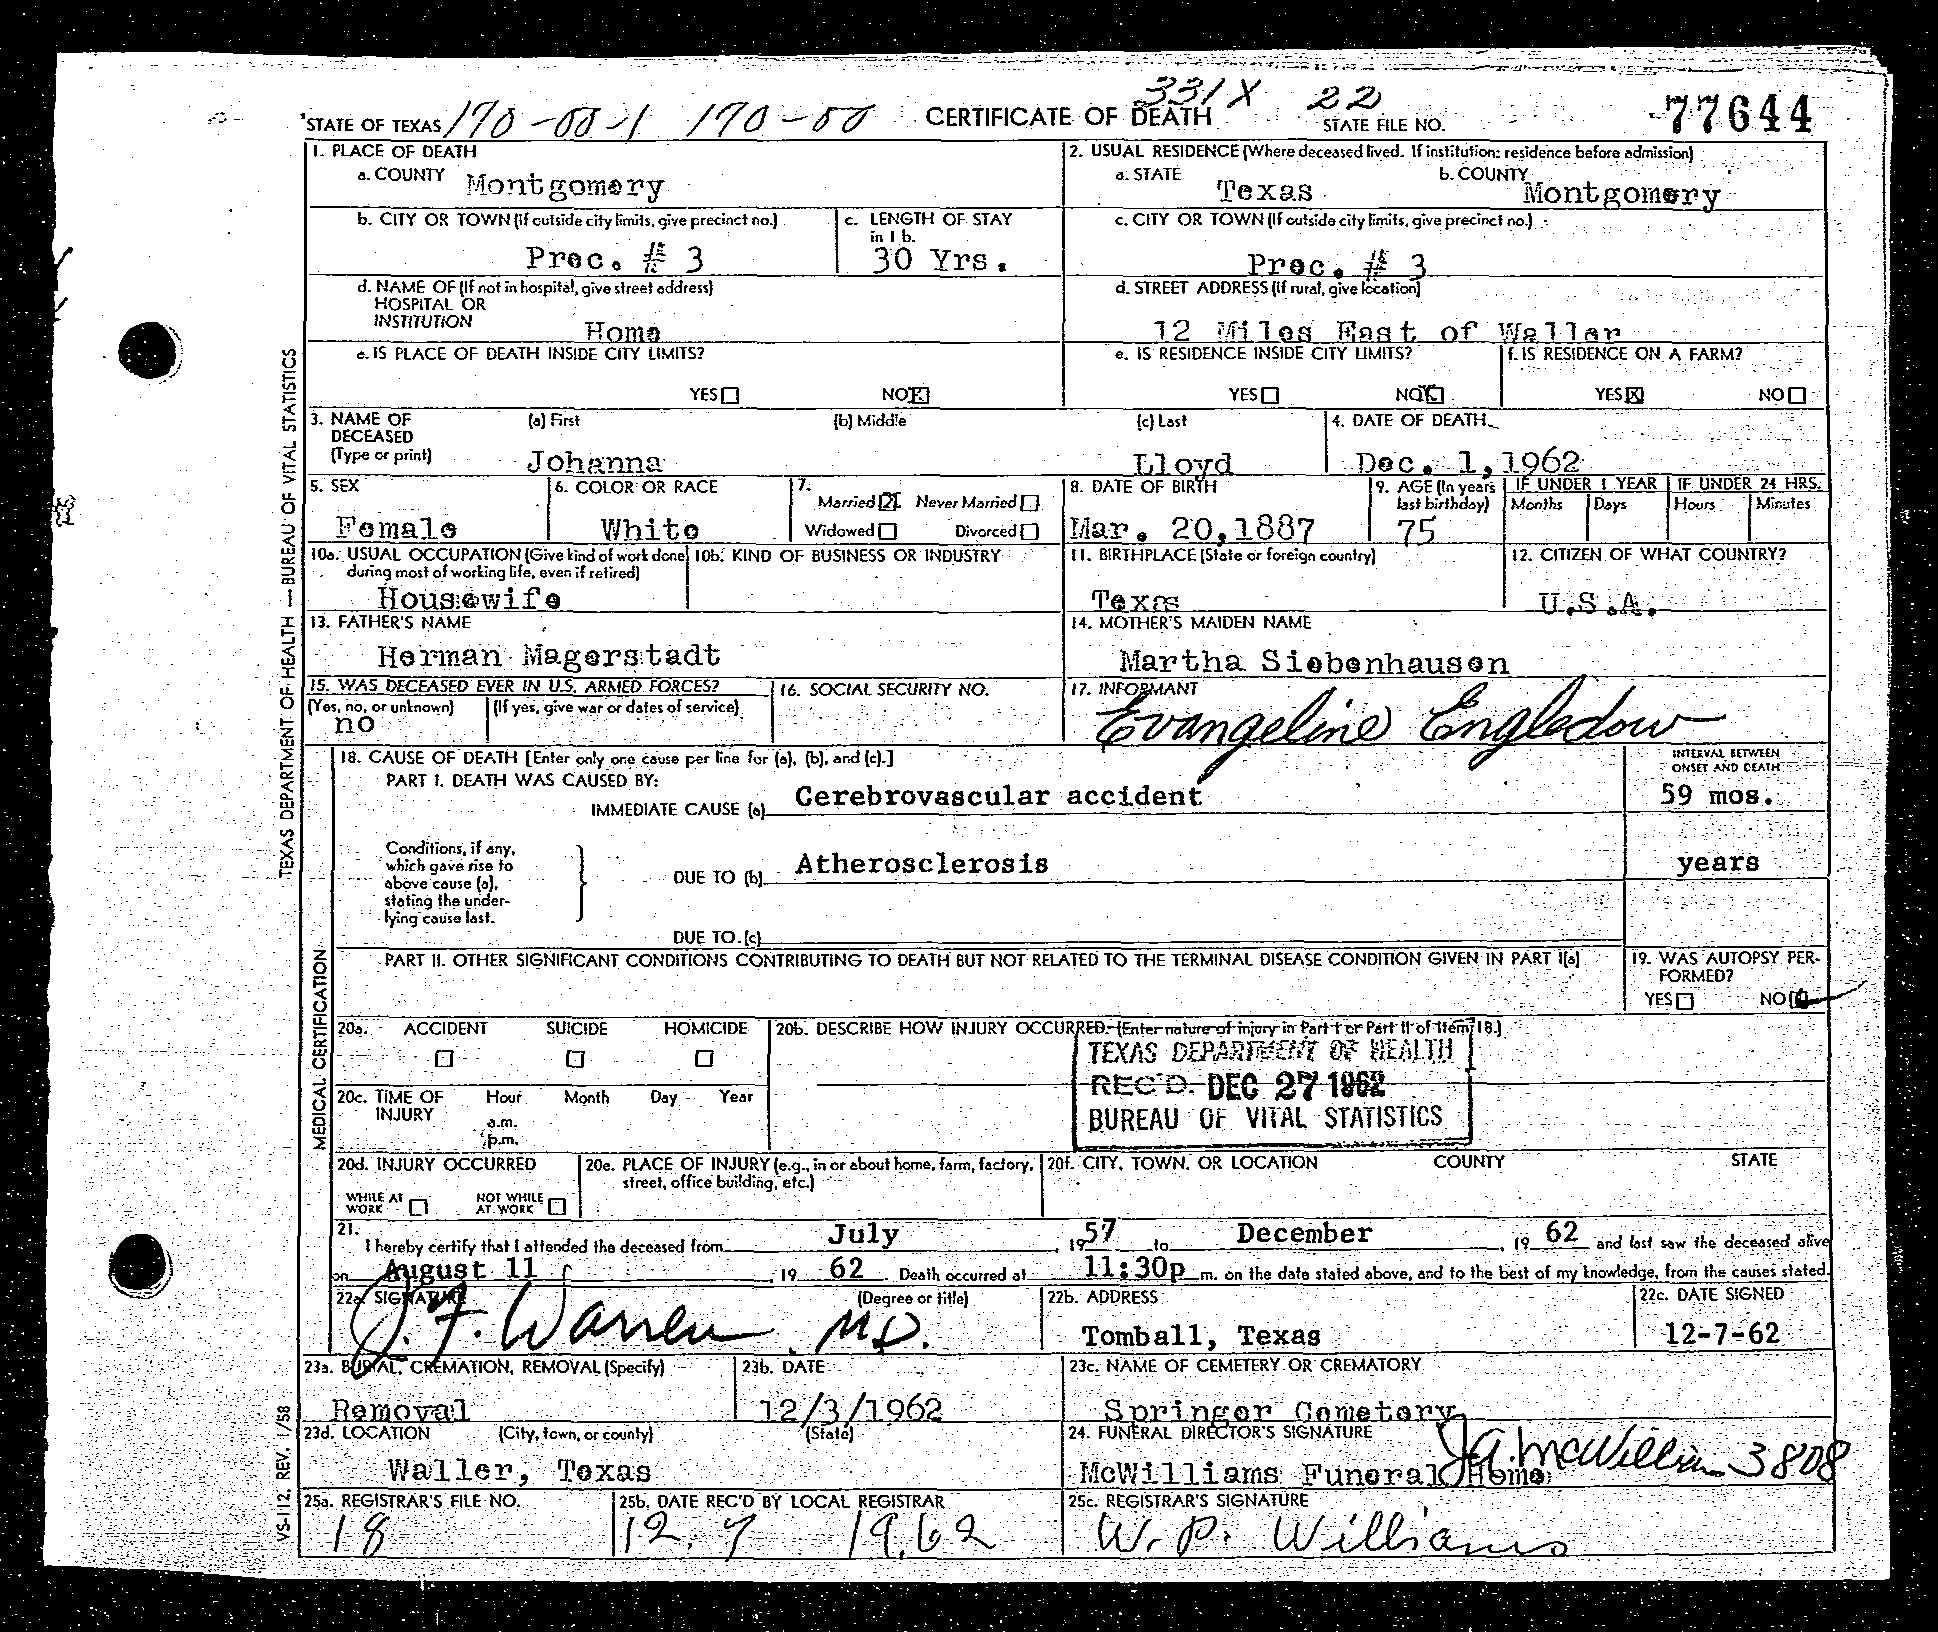 331X 22
STATE OF TEXAS 170-00-1 170-00 CERTIFICATE OF DEATH STATE FILE NO. 77644
1. PLACE OF DEATH
a. COUNTY Montgomery
2. USUAL RESIDENCE (Where deceased lived. If institution: residence before admission)
a. STATE Texas b. COUNTY Montgomery
b. CITY OR TOWN (if outside city limits, give precinct no.) Prec. # 3
c. LENGTH OF STAY in 1 b. 30 Yrs.
c. CITY OR TOWN (If outside city limits, give precinct no.) Prec. # 3
d. NAME OF (If not in hospital, give street address)
HOSPITAL OR
INSTITUTION Home
d. STREET ADDRESS (If rural, give location)
12 Miles East of Waller
e. IS PLACE OF DEATH INSIDE CITY LIMITS?
YES NO X
e. IS RESIDENCE INSIDE CITY LIMITS?
YES NO X
f. IS RESIDENCE ON A FARM?
YES X NO
3. NAME OF DECEASED (Type or print)
(a) First (b) Middle (c) Last
Johanna Lloyd
4. DATE OF DEATH
Dec. 1, 1962
5. SEX
Female
6. COLOR OR RACE
White
7.
Married X Never Married
Widowed Divorced
8. DATE OF BIRTH
Mar. 20, 1887
9. AGE (In years last birthday)
75
IF UNDER 1 YEAR
Months Days
IF UNDER 24 HRS.
Hours Minutes
10a. USUAL OCCUPATION (Give kind of work done during most of working life, even if retired)
Housewife
10b. KIND OF BUSINESS OR INDUSTRY
11. BIRTHPLACE (State or foreign country)
Texas
12. CITIZEN OF WHAT COUNTRY?
U.S.A.
13. FATHER'S NAME
Herman Magerstadt
14. MOTHER'S MAIDEN NAME
Martha Siebenhausen
15. WAS DECEASED EVER IN U.S. ARMED FORCES?
(Yes, no, or unknown) (If yes, give war or dates of service)
no
16. SOCIAL SECURITY NO.
17. INFORMANT
Evangeline Engledow
18. CAUSE OF DEATH [Enter only one cause per line for (a), (b), and (c).]
INTERVAL BETWEEN ONSET AND DEATH
PART I. DEATH WAS CAUSED BY:
IMMEDIATE CAUSE (a) Cerebrovascular accident 59 mos.
Conditions, if any,
which gave rise to
above cause (a),
stating the under-
lying cause last.
DUE TO (b) Atherosclerosis years
DUE TO (c)
PART II. OTHER SIGNIFICANT CONDITIONS CONTRIBUTING TO DEATH BUT NOT RELATED TO THE TERMINAL DISEASE CONDITION GIVEN IN PART I(a)
19. WAS AUTOPSY PER-
FORMED?
YES NO
20a. ACCIDENT SUICIDE HOMICIDE
20b. DESCRIBE HOW INJURY OCCURRED. (Enter nature of injury in Part I or Part II of Item 18.)
TEXAS DEPARTMENT OF HEALTH
REC'D. DEC 27 1962
BUREAU OF VITAL STATISTICS
20c. TIME OF INJURY
Hour Month Day Year
a.m.
p.m.
20d. INJURY OCCURRED
WHILE AT WORK NOT WHILE AT WORK
20e. PLACE OF INJURY (e.g., in or about home, farm, factory, street, office building, etc.)
20f. CITY, TOWN, OR LOCATION COUNTY STATE
21.
I hereby certify that I attended the deceased from July, 1957 to December, 1962 and last saw the deceased alive
on August 11, 1962. Death occurred at 11:30p m. on the date stated above, and to the best of my knowledge, from the causes stated.
22a. SIGNATURE (Degree or title)
J. F. Warren M.D.
22b. ADDRESS
Tomball, Texas
22c. DATE SIGNED
12-7-62
23a. BURIAL, CREMATION, REMOVAL (Specify)
Removal
23b. DATE
12/3/1962
23c. NAME OF CEMETERY OR CREMATORY
Springer Cemetery
23d. LOCATION (City, town, or county) (State)
Waller, Texas
24. FUNERAL DIRECTOR'S SIGNATURE
McWilliams Funeral Home J.A. McWilliams 3808
25a. REGISTRAR'S FILE NO.
18
25b. DATE REC'D BY LOCAL REGISTRAR
12. 7 1962
25c. REGISTRAR'S SIGNATURE
W. P. Williams
TEXAS DEPARTMENT OF HEALTH — BUREAU OF VITAL STATISTICS
MEDICAL CERTIFICATION
VS-112, REV. 1/58